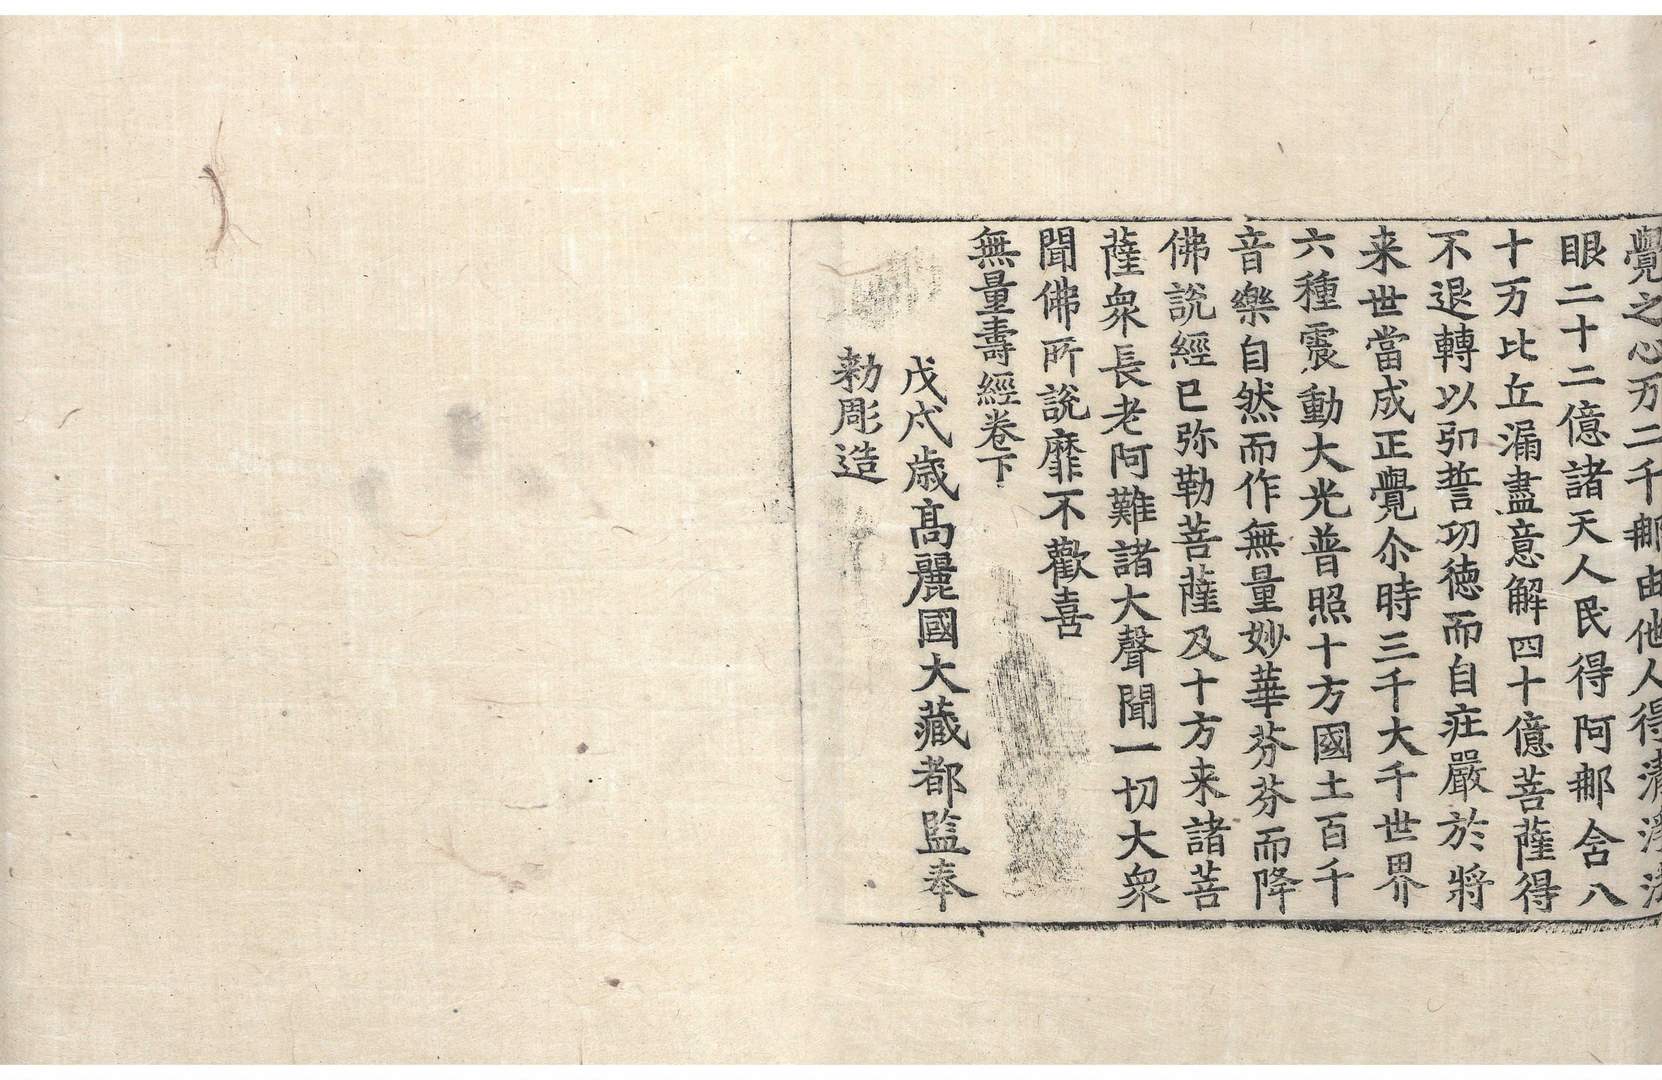 覺之心万二千那由他人得清淨法
眼二十二億諸天人民得阿那含八
十万比丘漏盡意解四十億菩薩得
不退轉以弘誓功徳而自庄嚴於將
来世當成正覺尒時三千大千世界
六種震動大光普照十方國土百千
音樂自然而作無量妙華芬芬而降
佛說經已弥勒菩薩及十方来諸菩
薩衆長老阿難諸大聲聞一切大衆
聞佛所說靡不歡喜
無量壽經卷下
戊戌歲高麗國大藏都監奉
勅彫造